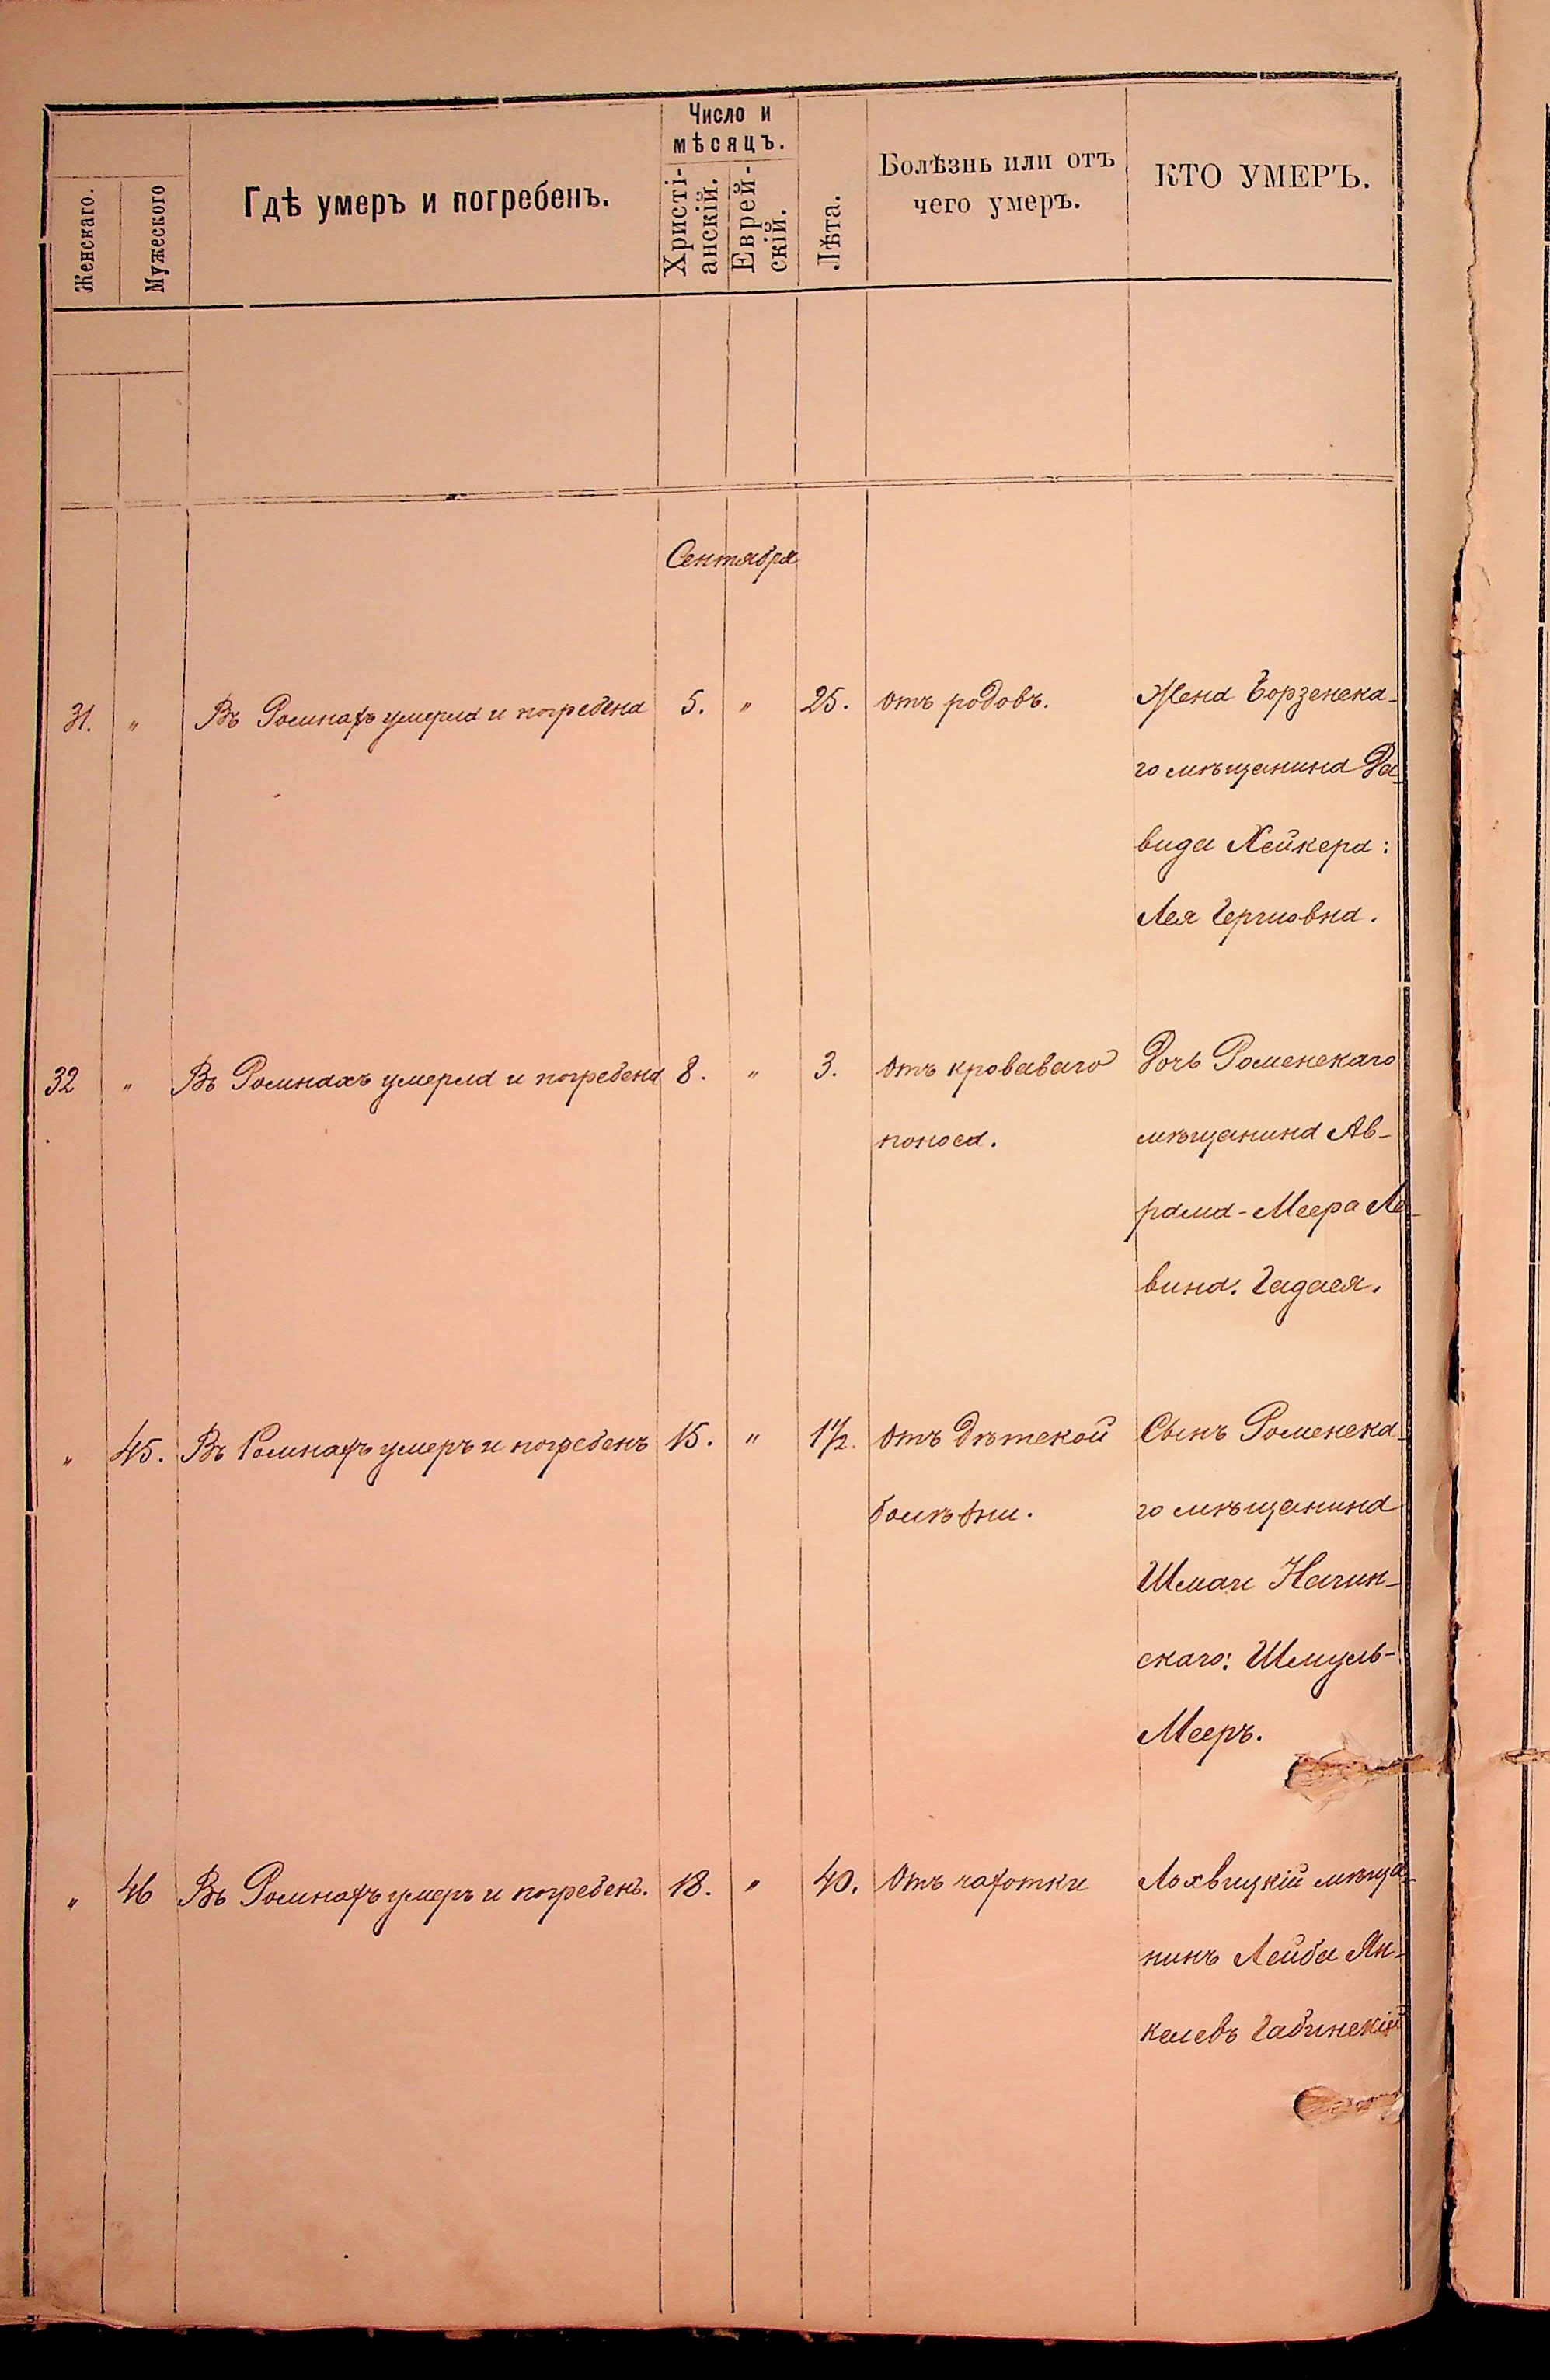 Женскаго.
Мужескаго
Гдѣ умеръ и погребенъ.
Число и
мѣсяцъ.
Христі-
анскій.
Еврей-
скій.
Лѣта.
Болѣзнь или отъ
чего умеръ.
КТО УМЕРЪ.
Сентября
31. " Въ Ромнахъ умерла и погребена 5. " 25. отъ родовъ. Жена Борзенска-
го мѣщанина Да-
вида Хейкера:
Лея Гершовна.
32 " Въ Ромнахъ умерла и погребена 8. " 3. отъ кроваваго Дочь Роменскаго
поноса. мѣщанина Ав-
рама-Меера Ле-
вина. Гадася.
" 45. Въ Ромнахъ умеръ и погребенъ 15. " 1½. отъ дѣтской Сынъ Роменска-
болѣзни. го мѣщанина
Шмаи
скаго: Шмуль-
Мееръ.
" 46 Въ Ромнахъ умеръ и погребенъ. 18. " 40. отъ чахотки Лохвицкій мѣща-
нинъ Лейба Ян-
келевъ Габинскій